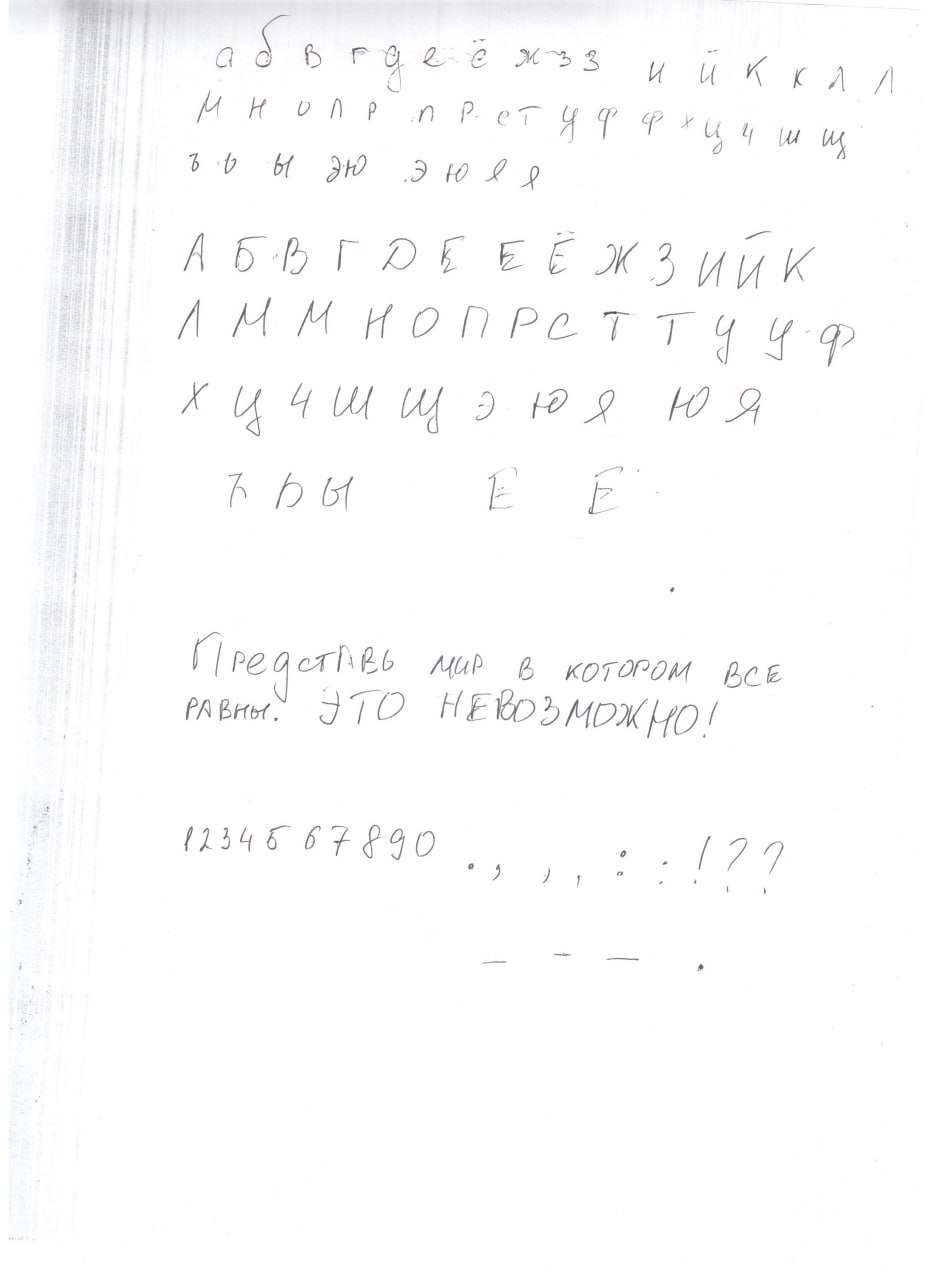 а б в г д е ё ж з з и й к к л л
м н о п р п р с т у ф ф х ц ч ш щ
ъ ь ы э ю э ю я я
А Б В Г Д Е Е Ё Ж З И Й К
Л М М Н О П Р С Т Т У У Ф
Х Ц Ч Ш Щ Э Ю Я Ю Я
Ъ Ь Ы Е Е
Представь мир в котором все
равны. ЭТО НЕВОЗМОЖНО!
1 2 3 4 5 6 7 8 9 0 . , , , : : ! ? ?
_ - — .